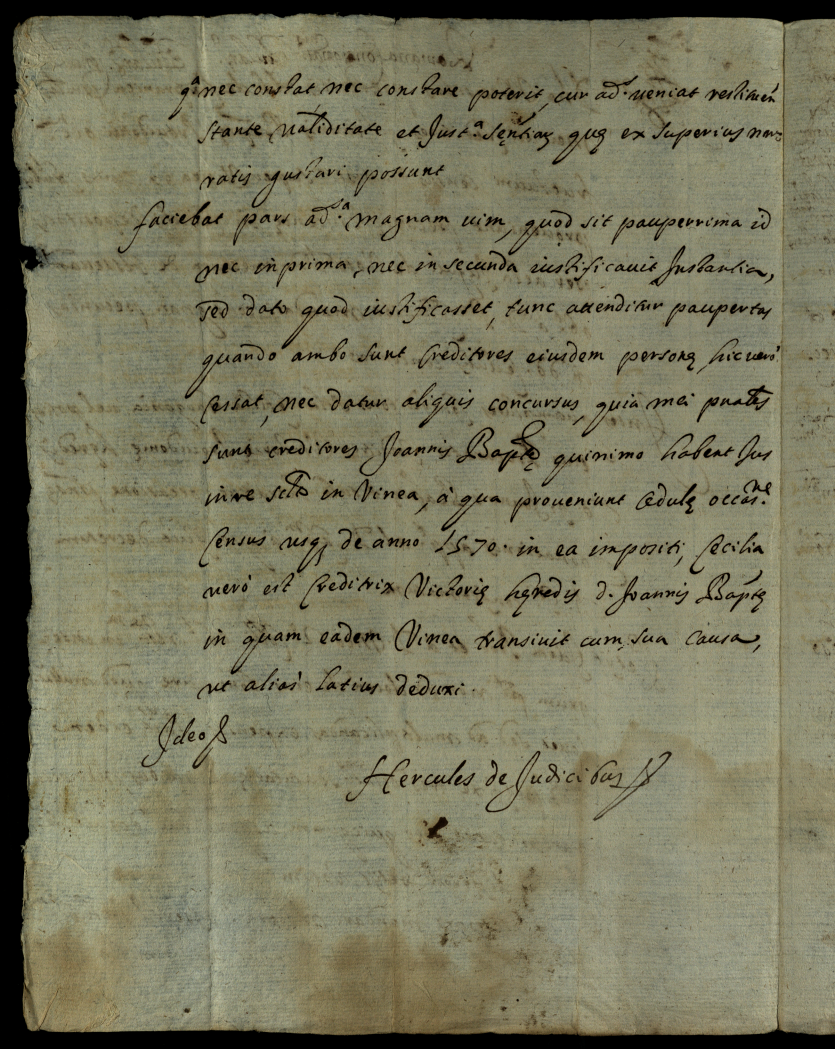 qa nec constat, nec constare poterit, cur adsa veniat restituen
stante validitate et Justa sentiae, quę ex superius nar-
ratis gustari possunt
faciebat pars adsa magnam uim, quod sit pauperrima id
nec in prima, nec in secunda iustificauit Instantia,
sed dato quod iustificasset, tunc attenditur paupertas
quando ambo sunt Creditores eiusdem personę, hic uerò
Cessat, nec datur aliquis concursus, quia mei
sunt creditores Joannis Baptę quinimo habent Jus
in re in Vinea, à qua proueniunt Cedulę occasne
Census usq de anno 1570. in ea impositi, Cecilia
uerò est Creditrix Victorię hęredis d. Joannis Baptę
in quam eadem Vinea transiuit cum sua causa,
ut aliàs latius deduxi.
Ideo
Hercules de Judicibus